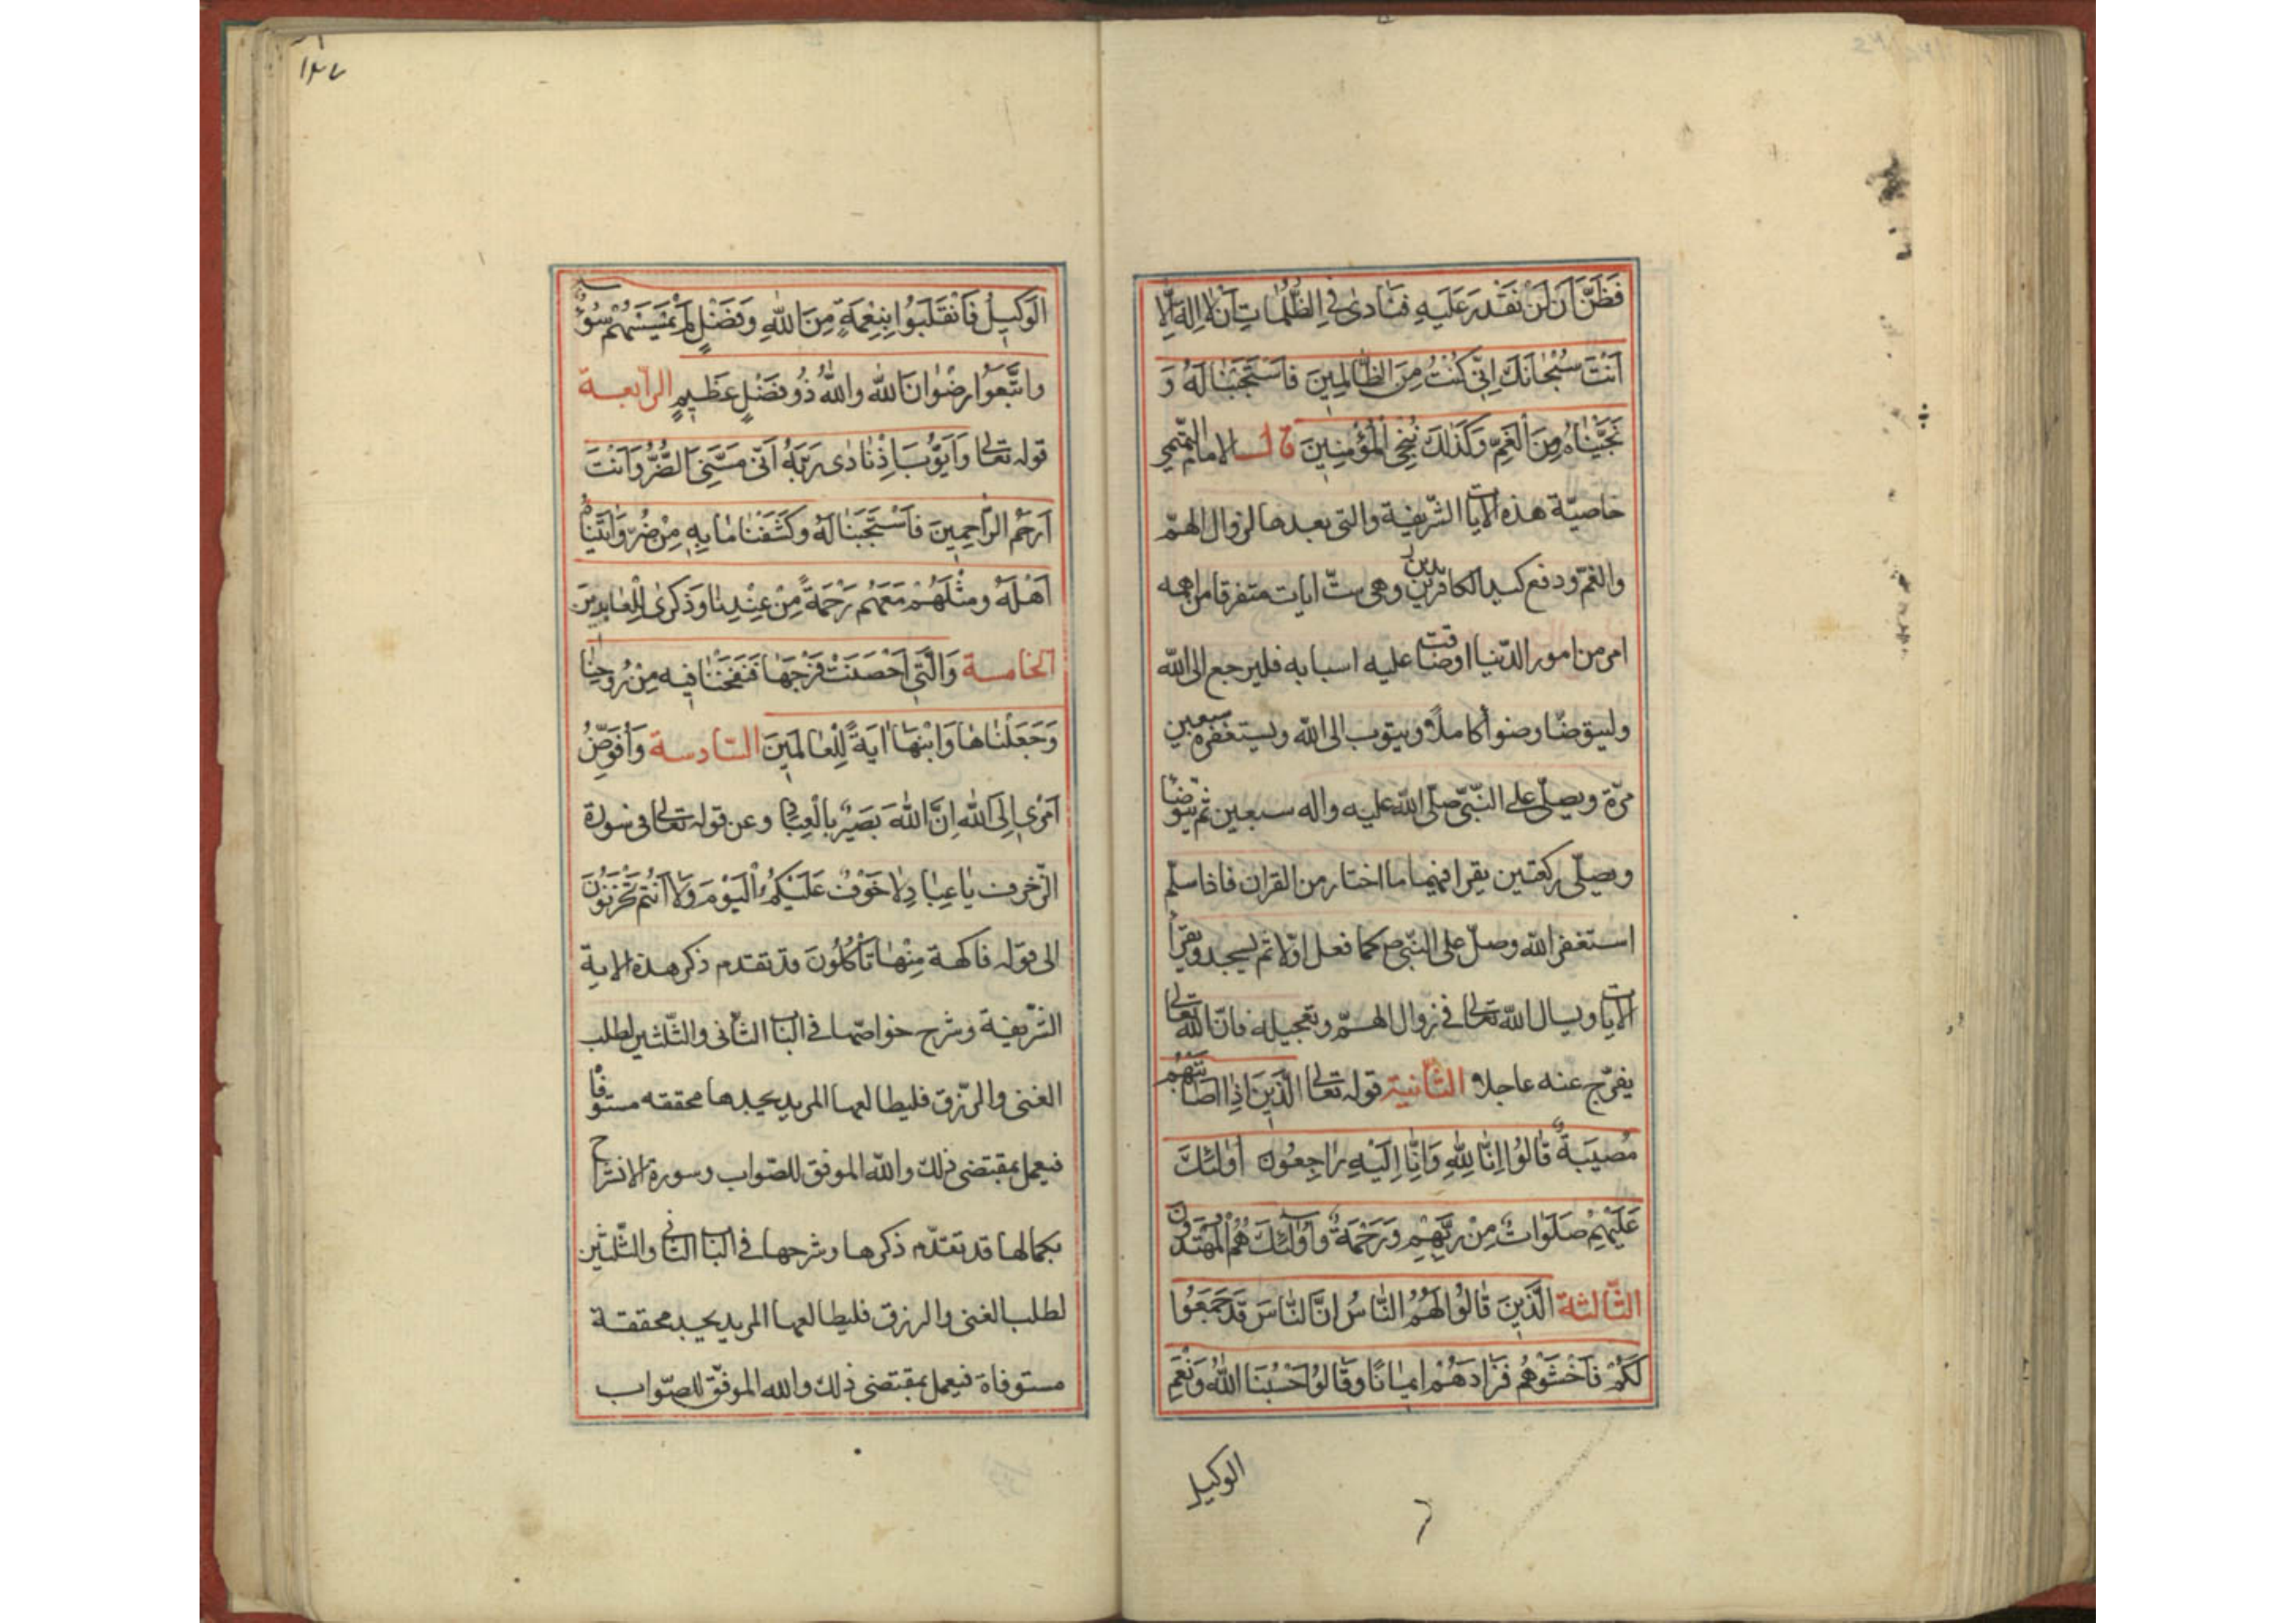 فَظَنَّ اَنْ لَنْ نَقْدِرَ عَلَيْهِ فَنَادىٰ فِي الظُّلُمَاتِ اَنْ لَا اِلٰهَ اِلَّا
اَنْتَ سُبْحَانَكَ اِنِّي كُنْتُ مِنَ الظَّالِمِينَ فَاسْتَجَبْنَا لَهُ وَ
نَجَّيْنَاهُ مِنَ الْغَمِّ وَكَذٰلِكَ نُنْجِي الْمُؤْمِنِينَ قال الامام التميمي
خاصيّة هذه الايات الشّريفة والتى بعدها لزوال الهمّ
والغمّ ودفع كيد الكافرين وهى ستّ ايات متفرقا من اهمه
امر من امور الدّنيا اوضاقت عليه اسبابه فليرجع الى الله
وليتوضّا وضوأ كاملاً ويتوب الى الله ويستغفره سبعين
مرّة ويصلّى على النّبىّ صلّى الله عليه واله سبعين ثم يتوضا
ويصلّى ركعتين يقرا فيهما ما اختار من القران فاذا سلّم
استغفر الله وصلّ على النّبى ص كما فعل اوّلا ثم يسجد ويقرأ
الايات ويسال الله تعالى فى زوال الهمّ وتعجيله فانّ الله تعالى
يفرّج عنه عاجلا الثّانية قوله تعالى الَّذِينَ اِذَا اَصَابَتْهُمْ
مُصِيبَةٌ قَالُوا اِنَّا لِلّٰهِ وَاِنَّا اِلَيْهِ رَاجِعُونَ اُولٰئِكَ
عَلَيْهِمْ صَلَوَاتٌ مِنْ رَبِّهِمْ وَرَحْمَةٌ وَاُولٰئِكَ هُمُ الْمُهْتَدُونَ
الثّالثة اَلَّذِينَ قَالُوا لَهُمُ النَّاسُ اِنَّ النَّاسَ قَدْ جَمَعُوا
لَكُمْ فَاخْشَوْهُمْ فَزَادَهُمْ اِيمَانًا وَقَالُوا حَسْبُنَا اللهُ وَنِعْمَ
الوكيل
١٤٧
الْوَكِيلُ فَانْقَلَبُوا بِنِعْمَةٍ مِنَ اللهِ وَفَضْلٍ لَمْ يَمْسَسْهُمْ سُوءٌ
وَاتَّبَعُوا رِضْوَانَ اللهِ وَاللهُ ذُو فَضْلٍ عَظِيمٍ الرابعة
قوله تعالى وَاَيُّوبَ اِذْ نَادىٰ رَبَّهُ اَنِّي مَسَّنِيَ الضُّرُّ وَاَنْتَ
اَرْحَمُ الرَّاحِمِينَ فَاسْتَجَبْنَا لَهُ وَكَشَفْنَا مَا بِهِ مِنْ ضُرٍّ وَاٰتَيْنَاهُ
اَهْلَهُ وَمِثْلَهُمْ مَعَهُمْ رَحْمَةً مِنْ عِنْدِنَا وَذِكْرىٰ لِلْعَابِدِينَ
الخامسة وَالَّتِي اَحْصَنَتْ فَرْجَهَا فَنَفَخْنَا فِيهِ مِنْ رُوحِنَا
وَجَعَلْنَاهَا وَابْنَهَا اٰيَةً لِلْعَالَمِينَ السّادسة وَاُفَوِّضُ
اَمْرِي اِلَى اللهِ اِنَّ اللهَ بَصِيرٌ بِالْعِبَادِ وعن قوله تعالى فى سورة
الزّخرف يَا عِبَادِ لَا خَوْفٌ عَلَيْكُمُ الْيَوْمَ وَلَا اَنْتُمْ تَحْزَنُونَ
الى قوله فَاكِهَةٌ مِنْهَا تَأْكُلُونَ قد تقدم ذكر هذه الاية
الشّريفة وشرح خواصّها فى الباب الثّانى والثّلثين لطلب
الغنى والرّزق فليطالعها المريد يجدها محققه مستوفا
فيعمل بمقتضى ذلك والله الموفق للصّواب وسورة الانشراح
بكمالها قد تقدّم ذكرها وشرحها فى الباب الثانى والثّلثين
لطلب الغنى والرزق فليطالعها المريد يجد محققة
مستوفاة فيعمل بمقتضى ذلك والله الموفّق للصّواب